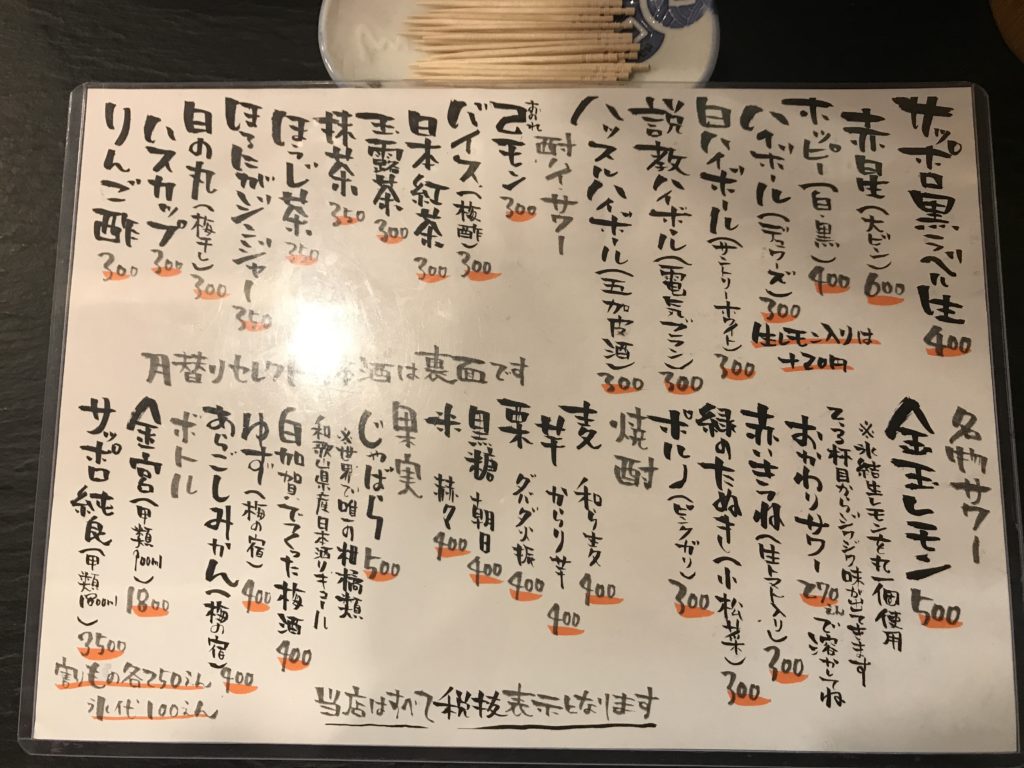 サッポロ黒ラベル生 400
赤星(大ビン) 600
ホッピー(白・黒) 400
ハイボール(デュワーズ) 300
生レモン入りは
+20円
白ハイボール(サントリーホワイト) 300
説教ハイボール(電気ブラン) 300
ハッスルハイボール(五加皮酒) 300
酎ハイ・サワー
乙モン 300
バイス(梅酢) 300
日本紅茶 300
玉露茶 300
抹茶 350
ほうじ茶 350
ほろにがジンジャー 350
日の丸(梅干し) 300
ハスカップ 300
りんご酢 300
月替りセレクト 酒は裏面です
名物サワー
金玉レモン 500
※氷結生レモンを丸一個使用
2、3杯目からジワジワ味が出てきます
おかわりサワー 270えんで溶かしてね
赤いきつね(生トマト入り) 300
緑のたぬき(小松菜) 300
ポルノ(ピンクガリ) 300
焼酎
麦 和ら麦 400
芋 からり芋 400
栗 ダバダ火振 400
黒糖 朝日 400
米 赫々 400
果実
じゃばら 500
※世界で唯一の柑橘類
和歌山県産日本酒リキュール
白加賀でつくった梅酒 400
ゆず(梅の宿) 400
あらごしみかん(梅の宿) 400
ボトル
金宮(甲類900ml) 1800
サッポロ純良(甲類1800ml) 3500
割りもの各250えん
氷代100えん
当店はすべて税抜表示となります